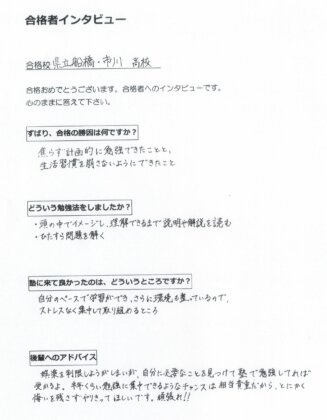 合格者インタビュー
合格校 県立船橋・市川 高校
合格おめでとうございます。合格者へのインタビューです。
心のままに答えて下さい。
ずばり、合格の勝因は何ですか？
焦らず計画的に勉強できたことと、
生活習慣を崩さないようにできたこと
どういう勉強法をしましたか？
・頭の中でイメージし、理解できるまで説明や解説を読む
・ひたすら問題を解く
塾に来て良かったのは、どういうところですか？
自分のペースで学習ができ、さらに環境も整っているので、
ストレスなく集中して取り組めるところ
後輩へのアドバイス
娯楽を制限しようがしまいが、自分に必要なことを見つけて塾で勉強してれば
受かるよ。半年くらい勉強に集中できるようなチャンスは相当貴重だから、とにかく
悔いを残さずやりきってほしいです。頑張れ!!